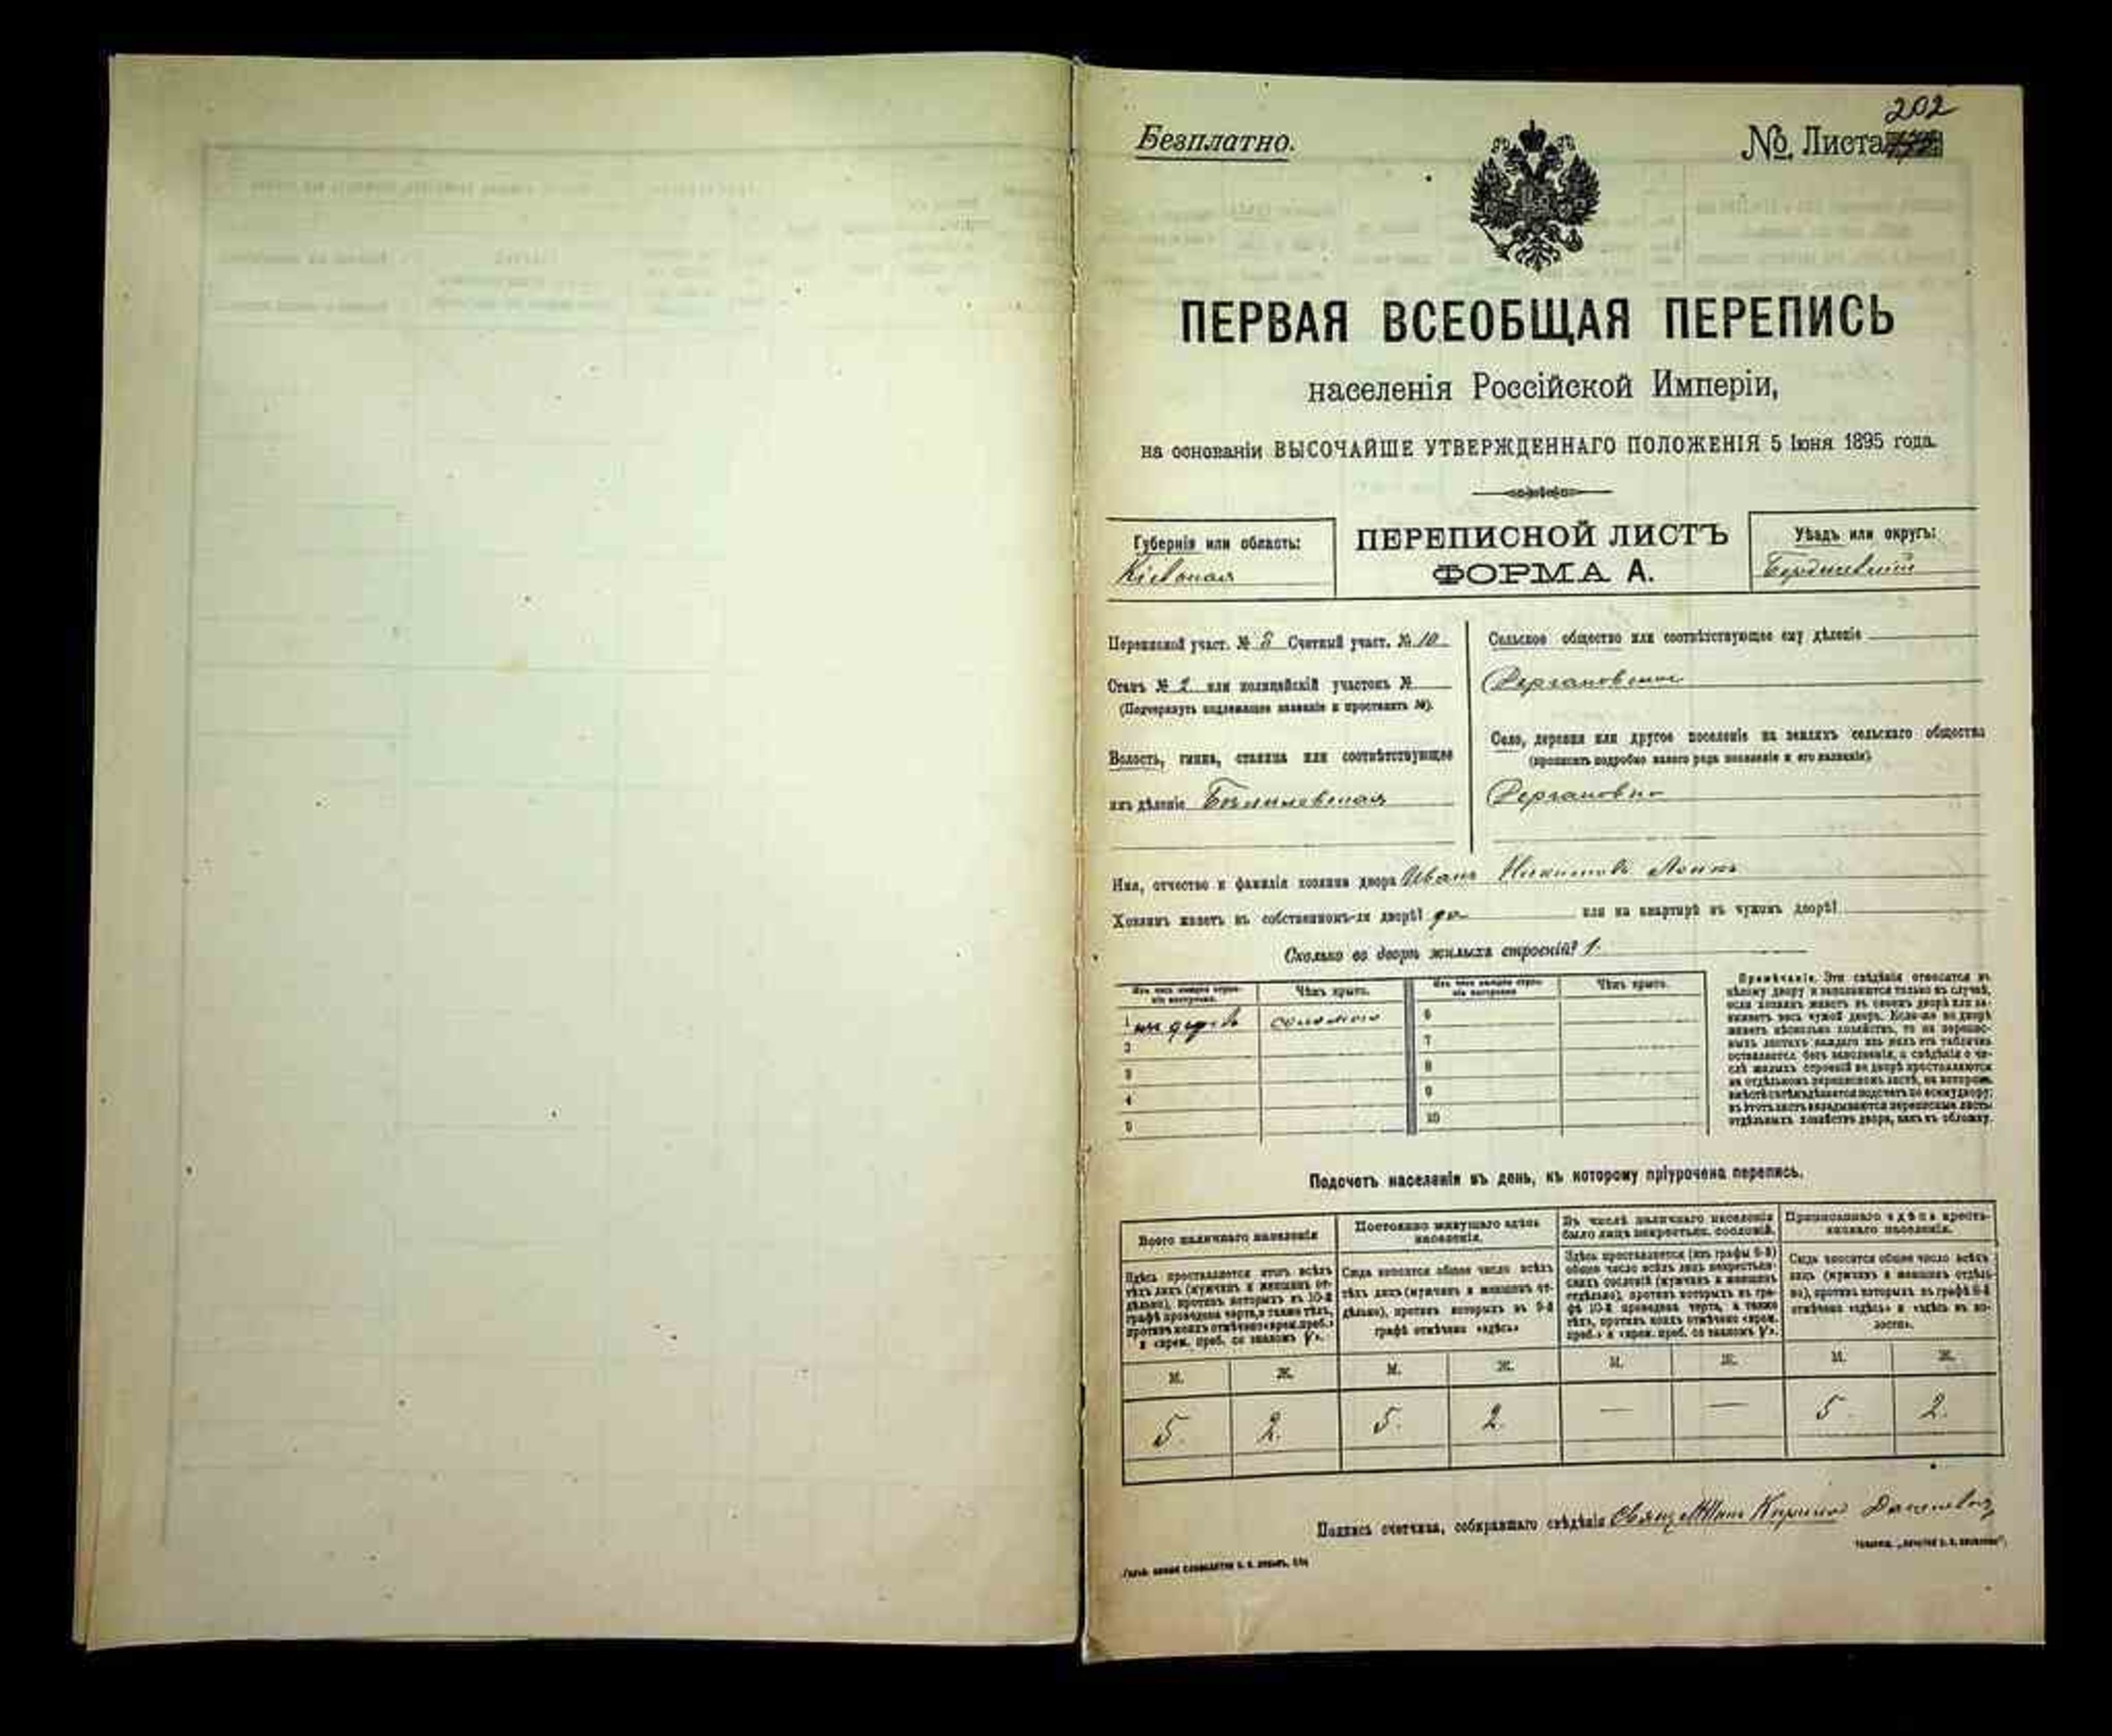 202
Безплатно.
№ Листа
ПЕРВАЯ ВСЕОБЩАЯ ПЕРЕПИСЬ
населенія Россійской Имперіи,
на основаніи ВЫСОЧАЙШЕ УТВЕРЖДЕННАГО ПОЛОЖЕНІЯ 5 Іюня 1895 года.
Губернія или область:
Кіевская
ПЕРЕПИСНОЙ ЛИСТЪ
ФОРМА А.
Уѣздъ или округъ:
Бердичевскій
Переписной участ. № Счетный участ. № 10
Станъ № 2 или полицейскій участокъ №
(Подчеркнуть надлежащее названіе и проставить №).
Волость, гмина, станица или соотвѣтствующее
имъ дѣленіе Бѣлиловская
Сельское общество или соотвѣтствующее ему дѣленіе
Село, деревня или другое поселеніе на земляхъ сельскаго общества
(прописать подробно какого рода поселеніе и его названіе).
Имя, отчество и фамилія хозяина двора Иванъ Никитовъ
Хозяинъ живетъ въ собственномъ-ли дворѣ? да или на квартирѣ въ чужомъ дворѣ?
Сколько во дворѣ жилыхъ строеній? 1.
Изъ чего каждое строеніе построено.
Чѣмъ крыто.
Изъ чего каждое строеніе построено
Чѣмъ крыто.
1 изъ дерева соломою
2
3
4
5
6
7
8
9
10
Примѣчаніе. Эти свѣдѣнія относятся къ
цѣлому двору и заполняются только въ случаѣ,
если хозяинъ живетъ въ своемъ дворѣ или за-
нимаетъ весь чужой дворъ. Если-же во дворѣ
живетъ нѣсколько хозяйствъ, то на перепис-
ныхъ листахъ каждаго изъ нихъ эта табличка
оставляется безъ заполненія, а свѣдѣнія о чи-
слѣ жилыхъ строеній во дворѣ проставляются
на отдѣльномъ переписномъ листѣ, на которомъ
вмѣстѣ съ тѣмъ дѣлается подсчетъ по всему двору;
въ этотъ листъ вкладываются переписные листы
отдѣльныхъ хозяйствъ двора, какъ въ обложку.
Подсчетъ населенія въ день, къ которому пріурочена перепись.
Всего наличнаго населенія
Постоянно живущаго здѣсь
населенія.
Въ числѣ наличнаго населенія
было лицъ некрестьян. сословій.
Приписаннаго здѣсь кресть-
янскаго населенія.
Здѣсь проставляется итогъ всѣхъ
тѣхъ лицъ (мужчинъ и женщинъ от-
дѣльно), противъ которыхъ въ 10-й
графѣ проведена черта, а также тѣхъ,
противъ коихъ отмѣчено «врем. преб.»
и «врем. преб. со знакомъ V».
Сюда вносится общее число всѣхъ
тѣхъ лицъ (мужчинъ и женщинъ от-
дѣльно), противъ которыхъ въ 9-й
графѣ отмѣчено «здѣсь»
Здѣсь проставляется (изъ графы 6-й)
общее число всѣхъ лицъ некрестьян-
скихъ сословій (мужчинъ и женщинъ
отдѣльно), противъ которыхъ въ гра-
фѣ 10-й проведена черта, а также
тѣхъ, противъ коихъ отмѣчено «врем.
преб.» и «врем. преб. со знакомъ V».
Сюда вносится общее число всѣхъ
лицъ (мужчинъ и женщинъ отдѣль-
но), противъ которыхъ въ графѣ 8-й
отмѣчено «здѣсь» и «здѣсь въ во-
лости».
М. Ж. М. Ж. М. Ж. М. Ж.
5. 2. 5. 2. — — 5. 2.
Подпись счетчика, собиравшаго свѣдѣнія